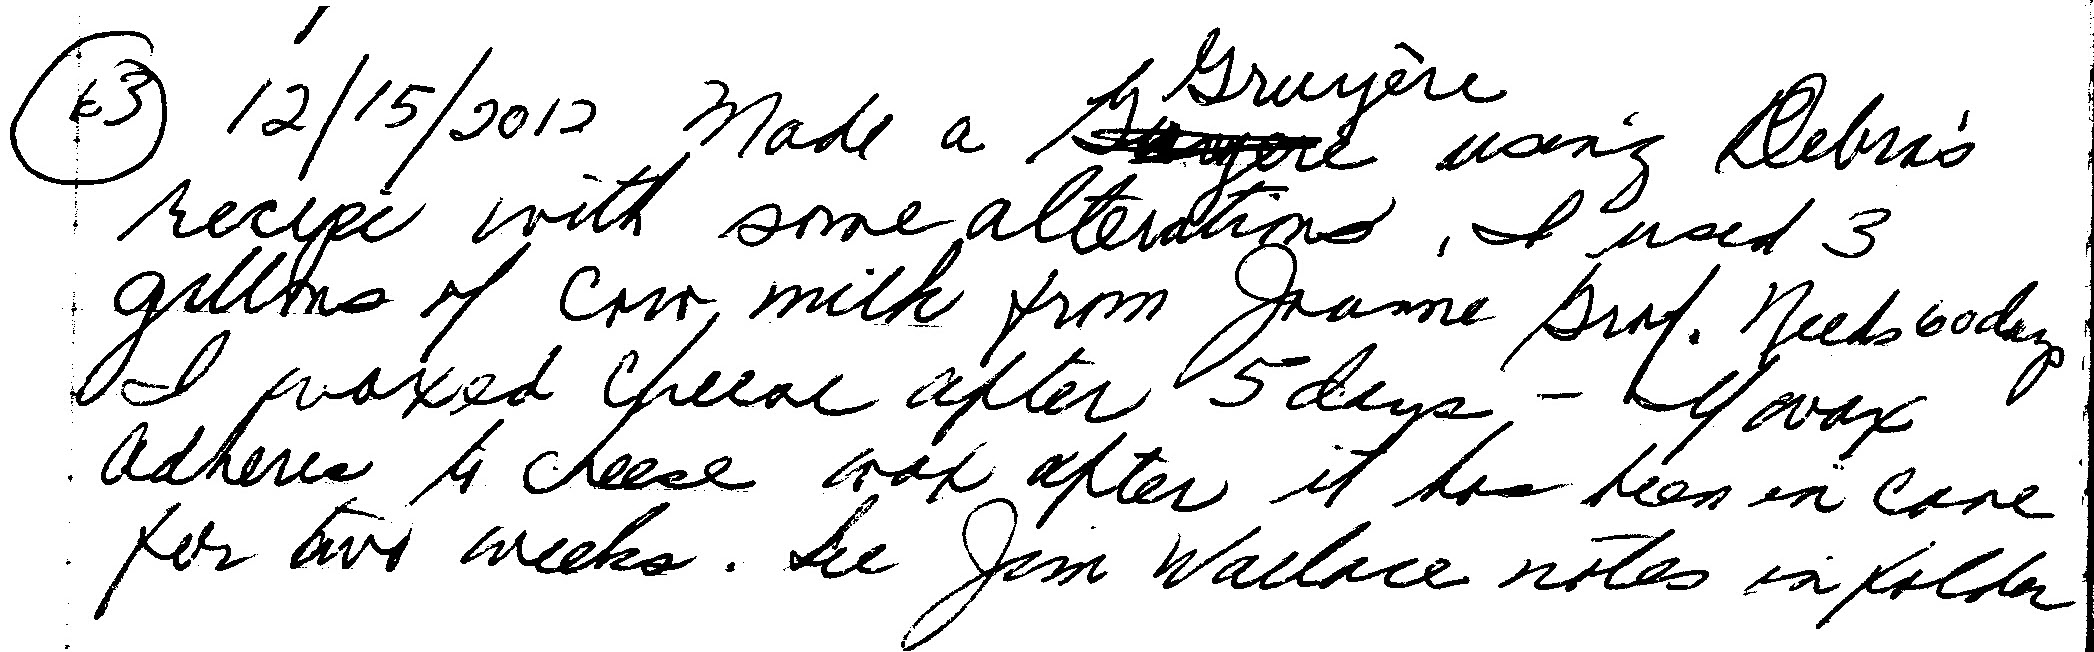 63 12/15/2012 Made a Gruyère using Debra's
recipe with some alterations. I used 3
gallons of cow milk from Joanne Graf. Needs 60 days
I waxed cheese after 5 days - If wax
adheres to cheese wax after it has been in cave
for two weeks. See Jim Wallace notes in folder